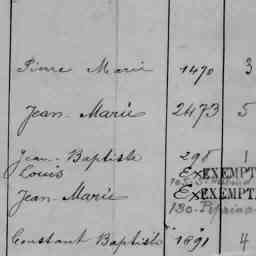 Pierre Marie 1470 3
Jean-Marie 2473 5
Jean-Baptiste 298 1
Louis Ex EXEMPT
Jean-Marie Ex EXEMPT
130-
Constant Baptiste 1891 4